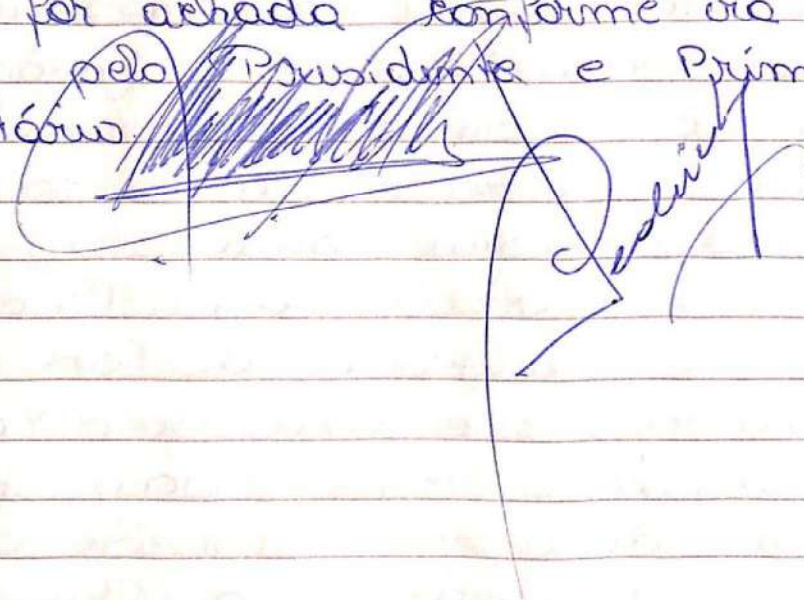 for achada conforme irá
pelo Presidente e Prim
tário